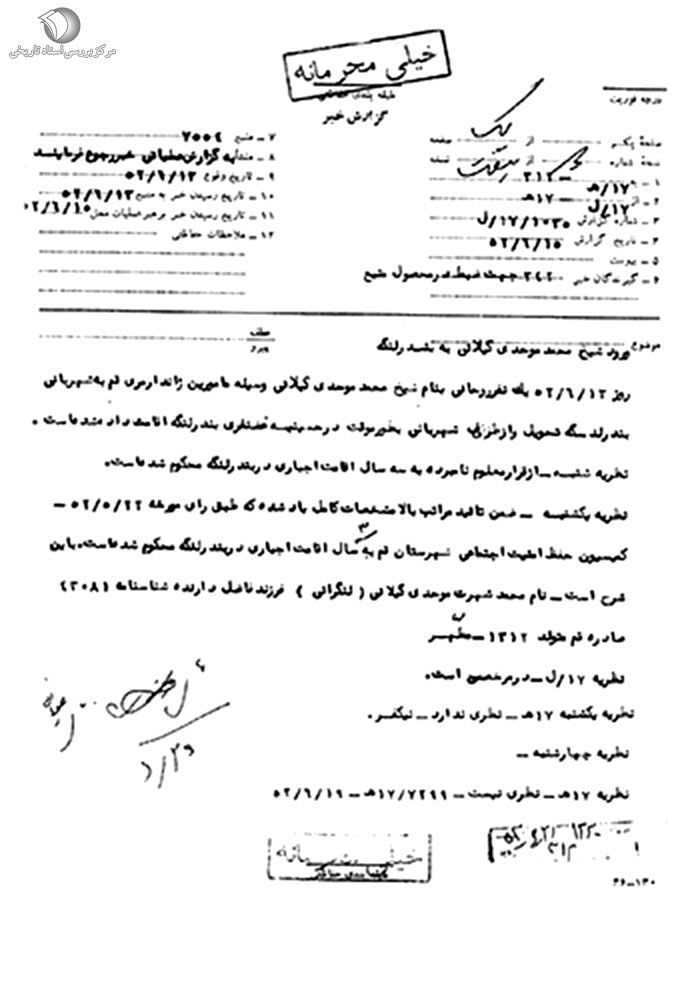 مرکز بررسی اسناد تاریخی
خیلی محرمانه
طبقه بندی حفاظتی
گزارش خبر
درجه فوریت
صفحه یکم از صفحه
نسخه شماره از نسخه
۱ – به ۳۱۲
۲ – از ۱۷/هـ
۱۷/ل
۳ – شماره گزارش ۱۷/۱۷۳۵/ل
۴ – تاریخ گزارش ۵۲/۶/۱۵
۵ – پیوست
۶ – گیرندگان خبر جهت ضبط در محصول منبع
۷ – منبع ۷۰۰۴
۸ – منشاء به گزارش عملیاتی خبر رجوع فرمایند
۹ – تاریخ وقوع ۵۲/۶/۱۳
۱۰ – تاریخ رسیدن خبر به منبع ۵۲/۶/۱۳
۱۱ – تاریخ رسیدن خبر برهبر عملیات محل ۵۲/۶/۱۵
۱۲ – ملاحظات حفاظتی
موضوع ورود شیخ محمد موحدی گیلانی به بندر لنگه
عطف
پیرو
روز ۵۲/۶/۱۳ یک نفر روحانی بنام شیخ محمد موحدی گیلانی وسیله مامورین ژاندارمری قم به شهربانی
بندر لنگه تحویل و از طرف شهربانی بطور موقت در حسینیه غضنفری بندر لنگه اقامت داده شده است .
نظریه شنبه – از قرار معلوم نامبرده به سه سال اقامت اجباری در بندر لنگه محکوم شده است.
نظریه یکشنبه – ضمن تائید مراتب بالا مشخصات کامل یاد شده که طبق رای مورخه ۵۲/۵/۲۲ –
کمیسیون حفظ امنیت اجتماعی شهرستان قم به ۳ سال اقامت اجباری در بندر لنگه محکوم شده است. باین
شرح است – نام محمد شهرت موحدی گیلانی ( لنگرانی ) فرزند فاضل دارنده شناسنامه (۲۰۸۱)
صادره قم متولد ۱۳۱۲ –
نظریه ۱۷/ل – در مرخصی است.
نظریه یکشنبه ۱۷هـ – نظری ندارد – نیکفر.
نظریه چهارشنبه –
نظریه ۱۷هـ – نظری نیست – ۱۷/۷۲۹۹هـ – ۵۲/۶/۱۹
خیلی محرمانه
طبقه بندی حفاظتی
۳۶–۱۳۰